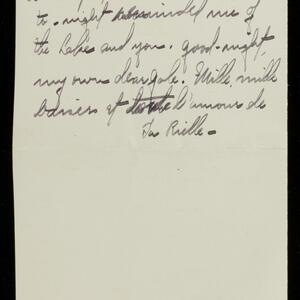 to-night reminded me of
the Lake and you. good-night,
my own dear gole. Mille, mille
baisers et toute l'amour de
Ta Rielle-